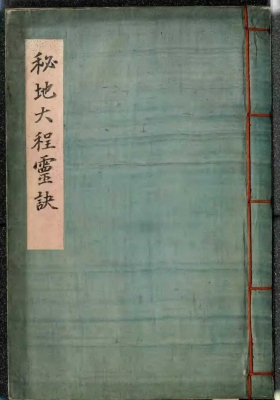 秘地大程靈訣